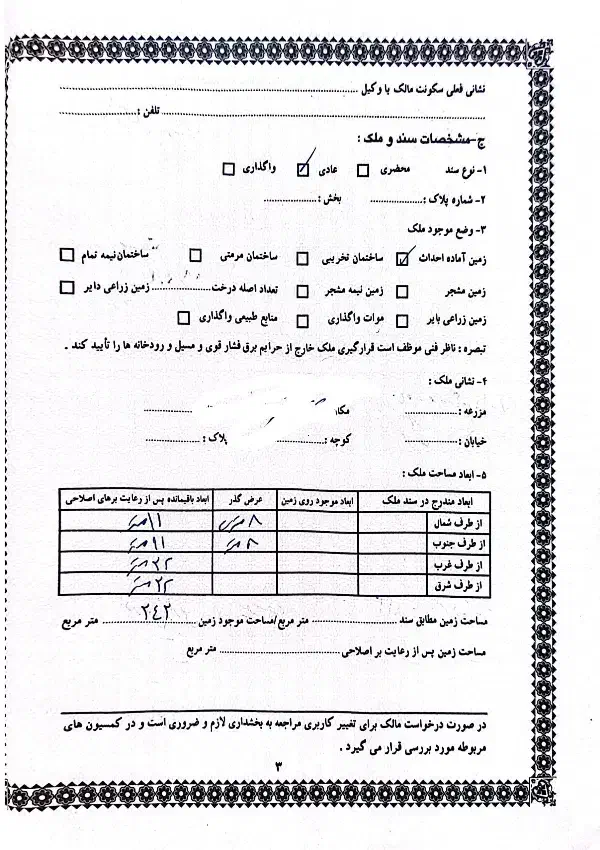 نشانی فعلی سکونت مالک یا وکیل ........................................
........................................ تلفن : ....................
ج-مشخصات سند و ملک :
۱- نوع سند محضری ☐ عادی ☑ واگذاری ☐
۲- شماره پلاک : .................... بخش : ....................
۳- وضع موجود ملک
زمین آماده احداث ☑ ساختمان تخریبی ☐ ساختمان مرمتی ☐ ساختمان نیمه تمام ☐
زمین مشجر ☐ زمین نیمه مشجر ☐ تعداد اصله درخت .................... زمین زراعی دایر ☐
زمین زراعی بایر ☐ موات واگذاری ☐ منابع طبیعی واگذاری ☐
تبصره : ناظر فنی موظف است قرارگیری ملک خارج از حرایم برق فشار قوی و مسیل و رودخانه ها را تأیید کند .
۴- نشانی ملک :
مزرعه : .................... ....................
خیابان : .................... کوچه : .................... پلاک : ....................
۵- ابعاد مساحت ملک :
ابعاد مندرج در سند ملک ابعاد موجود روی زمین عرض گذر ابعاد باقیمانده پس از رعایت برهای اصلاحی
از طرف شمال ۸ متر ۱۱ متر
از طرف جنوب ۸ متر ۱۱ متر
از طرف غرب ۲۲ متر
از طرف شرق ۲۲ متر
مساحت زمین مطابق سند .................... متر مربع/مساحت موجود زمین ۲٤۲ متر مربع
مساحت زمین پس از رعایت بر اصلاحی .................... متر مربع
در صورت درخواست مالک برای تغییر کاربری مراجعه به بخشداری لازم و ضروری است و در کمسیون های
مربوطه مورد بررسی قرار می گیرد .
۳